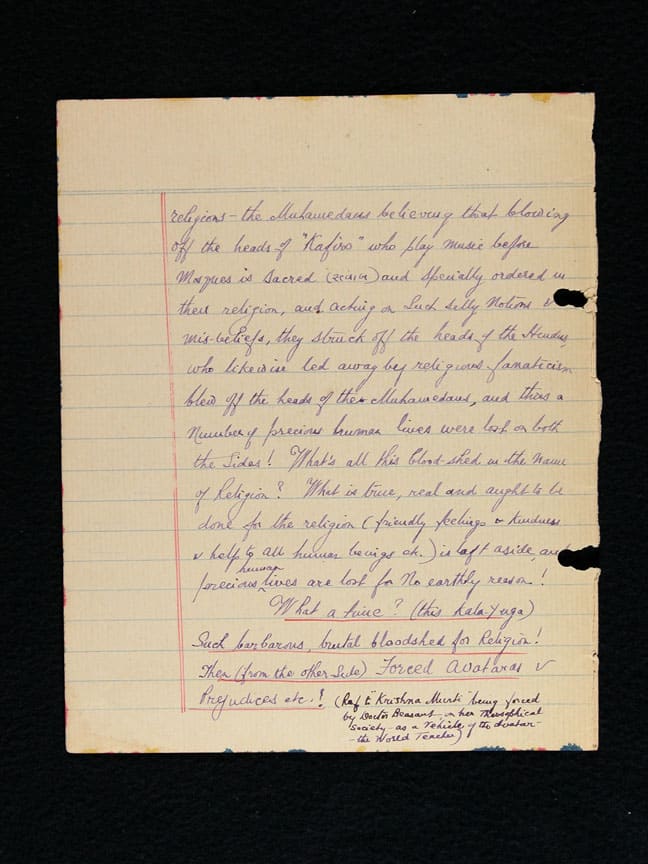 religions - the Muhamedans believing that blowing
off the heads of "Kafirs" who play music before
Mosques is sacred and specially ordered in
their religion, and acting on Such silly Notions &
mis-beliefs, they struck off the heads of the Hindus,
who likewise led away by religious fanaticism
blew off the heads of the Muhamedans, and thus a
Number of precious human lives were lost on both
the Sides! What's all this blood-shed in the Name
of Religion? What is true, real and aught to be
done for the religion (friendly feelings & kindness
& help to all human beings etc.) is left aside, and
human
precious lives are lost for No earthly reason!
What a time? (this Kala-Yuga)
Such barbarous, brutal bloodshed for Religion!
Then (from the other Side) Forced Avataras &
Prejudices etc.! (Ref to "Krishna Murti" being forced
by Doctor Beasant in her Theosophical
Society - as a Vehicle of the avatar -
- the World Teacher)